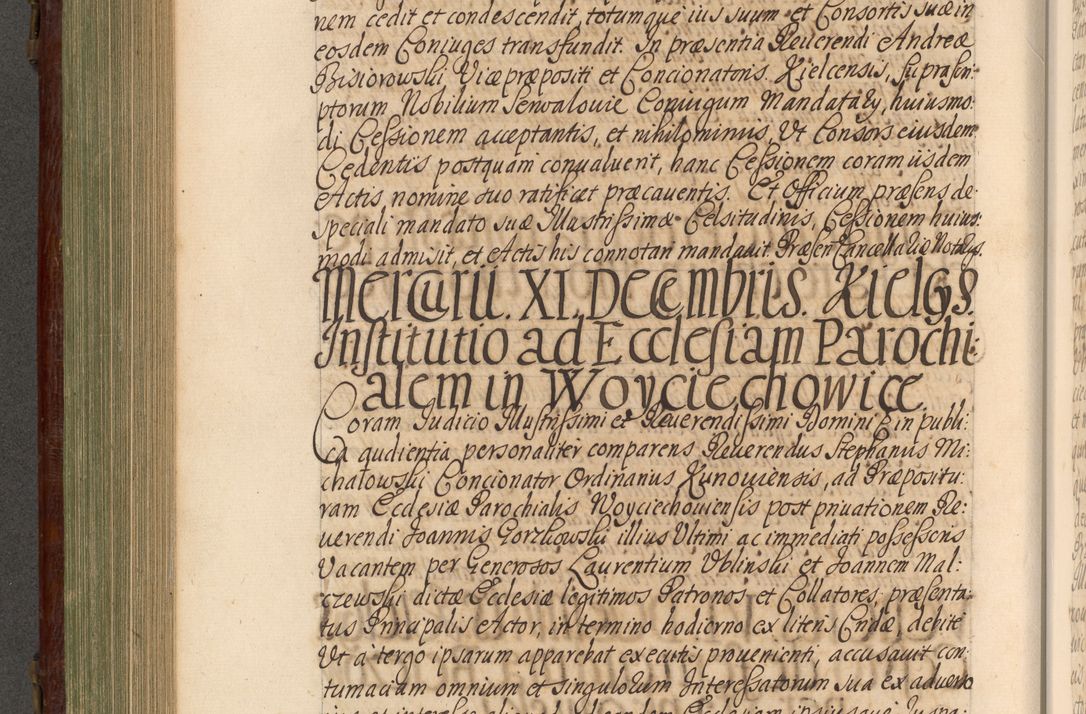 nem cedit et condescendit, totumque ius suum et Consortis suæ in
eosdem Coniuges transfundit. In præsentia Reuerendi Andreæ
Bisiorowski Vicæpræpositi et Concionatoris Kielcensis, suprascri-
ptorum Nobilium Senwalouic Coniugum Mandatarÿ, huiusmo:
di Cessionem acceptantis, et nihilominus, Vt Consors eiusdem
Cedentis postquam conualuerit, hanc Cessionem coram iisdem
Actis, nomine suo ratificet præcauentis. Et Officium præsens de
speciali mandato suæ Illustrissimæ Celsitudinis, Cessionem huius:
modi admisit, et Actis his connotari mandauit. Præsen: Cancellariæ Notarÿs.
Mercurii. XI. Decembris. Kielcys.
Institutio ad Ecclesiam Parochi:
alem in Woyciechowice.
Coram Judicio Illustrissimi et Reuerendissimi Domini in publi:
ca audientia personaliter comparens Reuerendus Stephanus Mi:
chałowski Concionator Ordinarius Kunouiensis, ad Præpositu:
ram Ecclesiæ Parochialis Woyciechouiensis post priuationem Re:
uerendi Joannis Gorzkowski illius Vltimi ac immediati possessoris
Vacantem per Generosos Laurentium Vblinski et Joannem Mal:
czewski dictæ Ecclesiæ legitimos Patronos et Collatores, præsenta:
tus Principalis Actor, in termino hodierno ex literis Cridæ, debite
Vt a tergo ipsarum apparebat executis prouenienti, accusauit con:
tumaciam omnium et singulorum Interessatorum sua ex aduerso